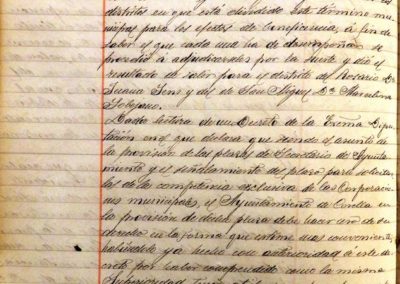 distritos en que está dividido este término mu-
nicipal para los efectos de beneficencia, á fin de
saber el que cada una ha de desempeñar se
procedió á adjudicarselos por la suerte y dió el
resultado de salir para el distrito del Rosario Dª
Juana Sens y del de San Miguel Dª Marcelina
Sobejano.
Dada lectura de un Decreto de la Excma Dipu-
tación en el que declara que siendo el asunto de
la provisión de las plazas de Secretario de Ayunta-
miento y el señalamiento del plazo para solicitar-
las de la competencia exclusiva de las Corporacio-
nes municipales, el Ayuntamiento de Corella en
la provisión de dicha plaza debe hacer uso de su
derecho en la forma que estime mas conveniente,
habiéndolo ya hecho con anterioridad á este de-
creto por haber comprendido como la misma
Superioridad